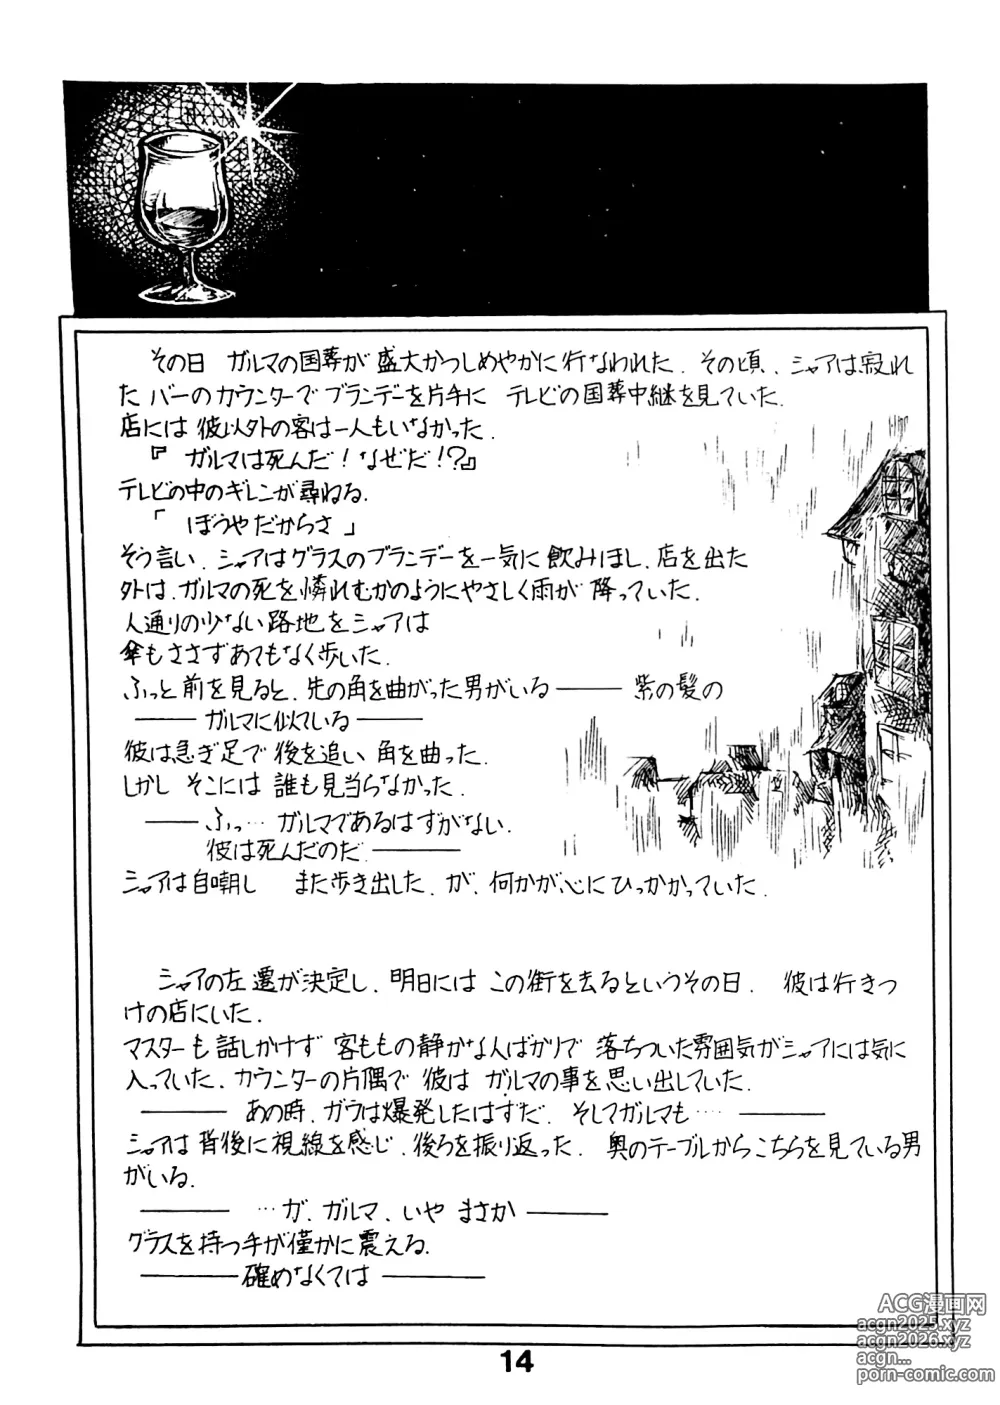 その日　ガルマの国葬が　盛大かつしめやかに行なわれた．その頃、シャアは寂れ
た バーのカウンターで ブランデーを片手に　テレビの国葬中継を見ていた．
店には 彼以外の客は一人もいなかった．
『　ガルマは死んだ！なぜだ！？』
テレビの中のギレンが尋ねる．
「　ぼうやだからさ 」
そう言い．シャアはグラスのブランデーを一気に飲みほし、店を出た
外は、ガルマの死を憐れむかのようにやさしく雨が 降っていた．
人通りの少ない路地をシャアは
傘もささずあてもなく歩いた．
ふっと前を見ると、先の角を曲がった男がいる――― 紫の髪の
――― ガルマに似ている ―――
彼は急ぎ足で 後を追い 角を曲った．
しかし そこには 誰も見当らなかった．
――― ふっ… ガルマであるはずがない．
彼は死んだのだ．―――
シャアは自嘲し　また歩き出した．が、何かが心にひっかかっていた．
シャアの左遷が決定し、明日には この街を去るというその日．　彼は行きつ
けの店にいた．
マスターも話しかけず 客ももの静かな人ばかりで 落ちついた雰囲気がシャアには気に
入っていた．カウンターの片隅で 彼は ガルマの事を思い出していた．
――― あの時、ガウは爆発したはずだ．そしてガルマも…… ―――
シャアは背後に視線を感じ、後ろを振り返った．　奥のテーブルからこちらを見ている男
がいる．
――― …ガ、ガルマ、いや まさか ―――
グラスを持つ手が僅かに震える．
――― 確めなくては ―――
14
ACG漫画网
acgn2025.xyz
acgn2026.xyz
acgn...
porn-comic.com